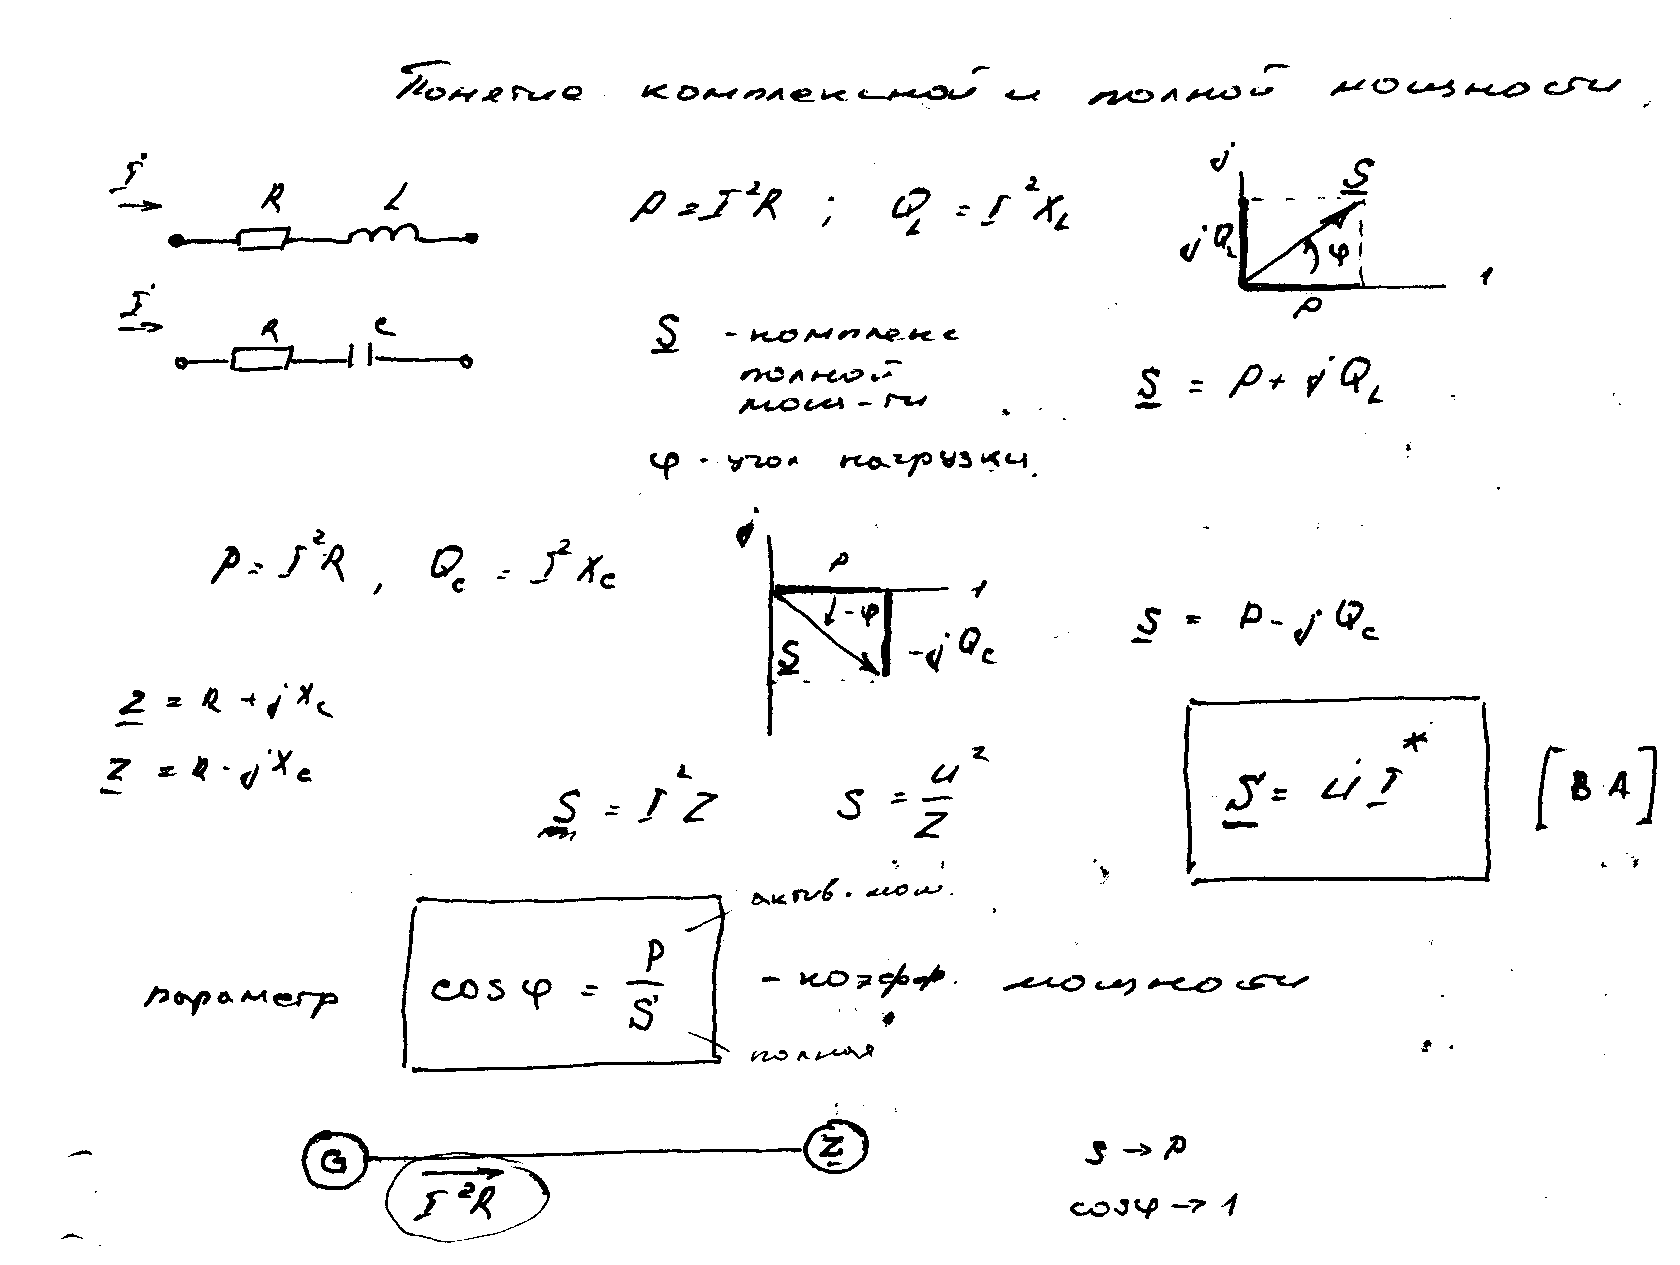 Понятие комплексной и полной мощности.
İ
R L
P = I²R ; Q_L = I²X_L
j
S
jQ_L
φ
1
P
İ
R C
S - комплекс
полной
мощ-ти
S = P + jQ_L
φ - угол нагрузки.
P = I²R , Q_c = I²X_c
j
P
1
-φ
S
-jQ_c
S = P - jQ_c
Z = R + jX_L
Z = R - jX_c
S = I²Z
S = U²/Z
S = U̇ I*
[В·А]
актив. мощ.
параметр cosφ = P/S - коэфф. мощности
полная
G Z
I²R
S → P
cosφ → 1